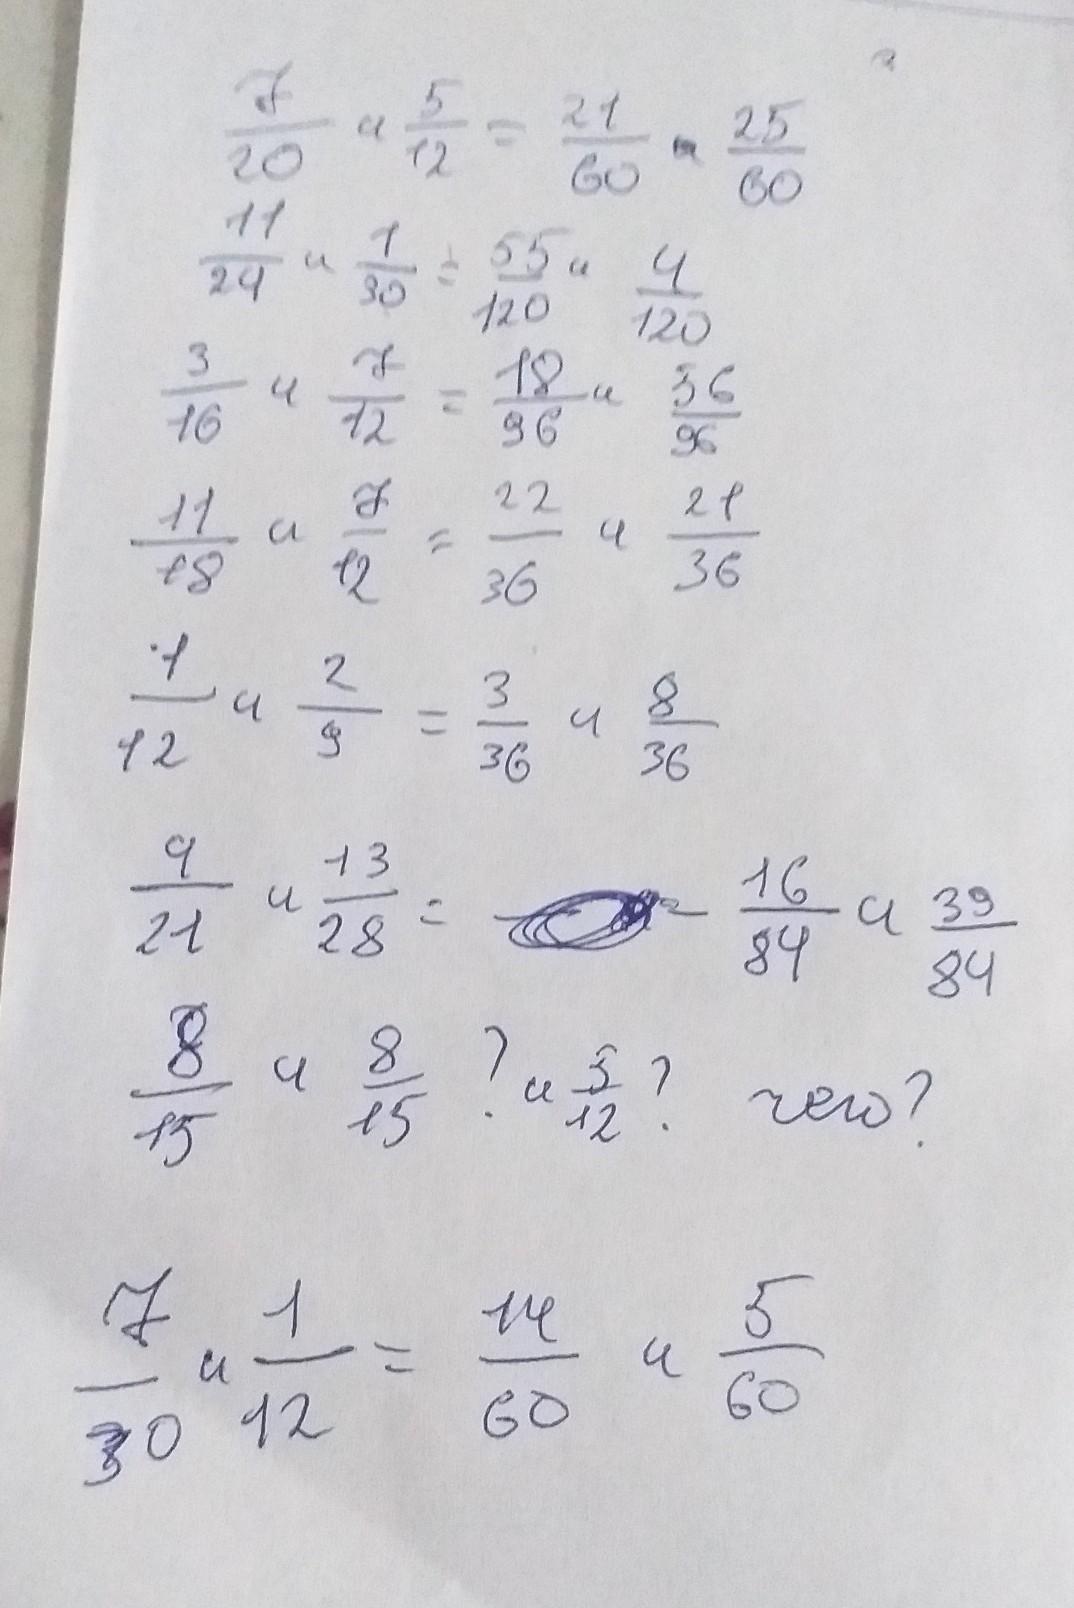 7/20 и 5/12 = 21/60 и 25/60
11/24 и 1/30 = 55/120 и 4/120
3/16 и 7/12 = 18/96 и 56/96
11/18 и 7/12 = 22/36 и 21/36
1/12 и 2/9 = 3/36 и 8/36
4/21 и 13/28 = 16/84 и 39/84
8/15 и 8/15 ? и 5/12 ? чего?
7/30 и 1/12 = 14/60 и 5/60